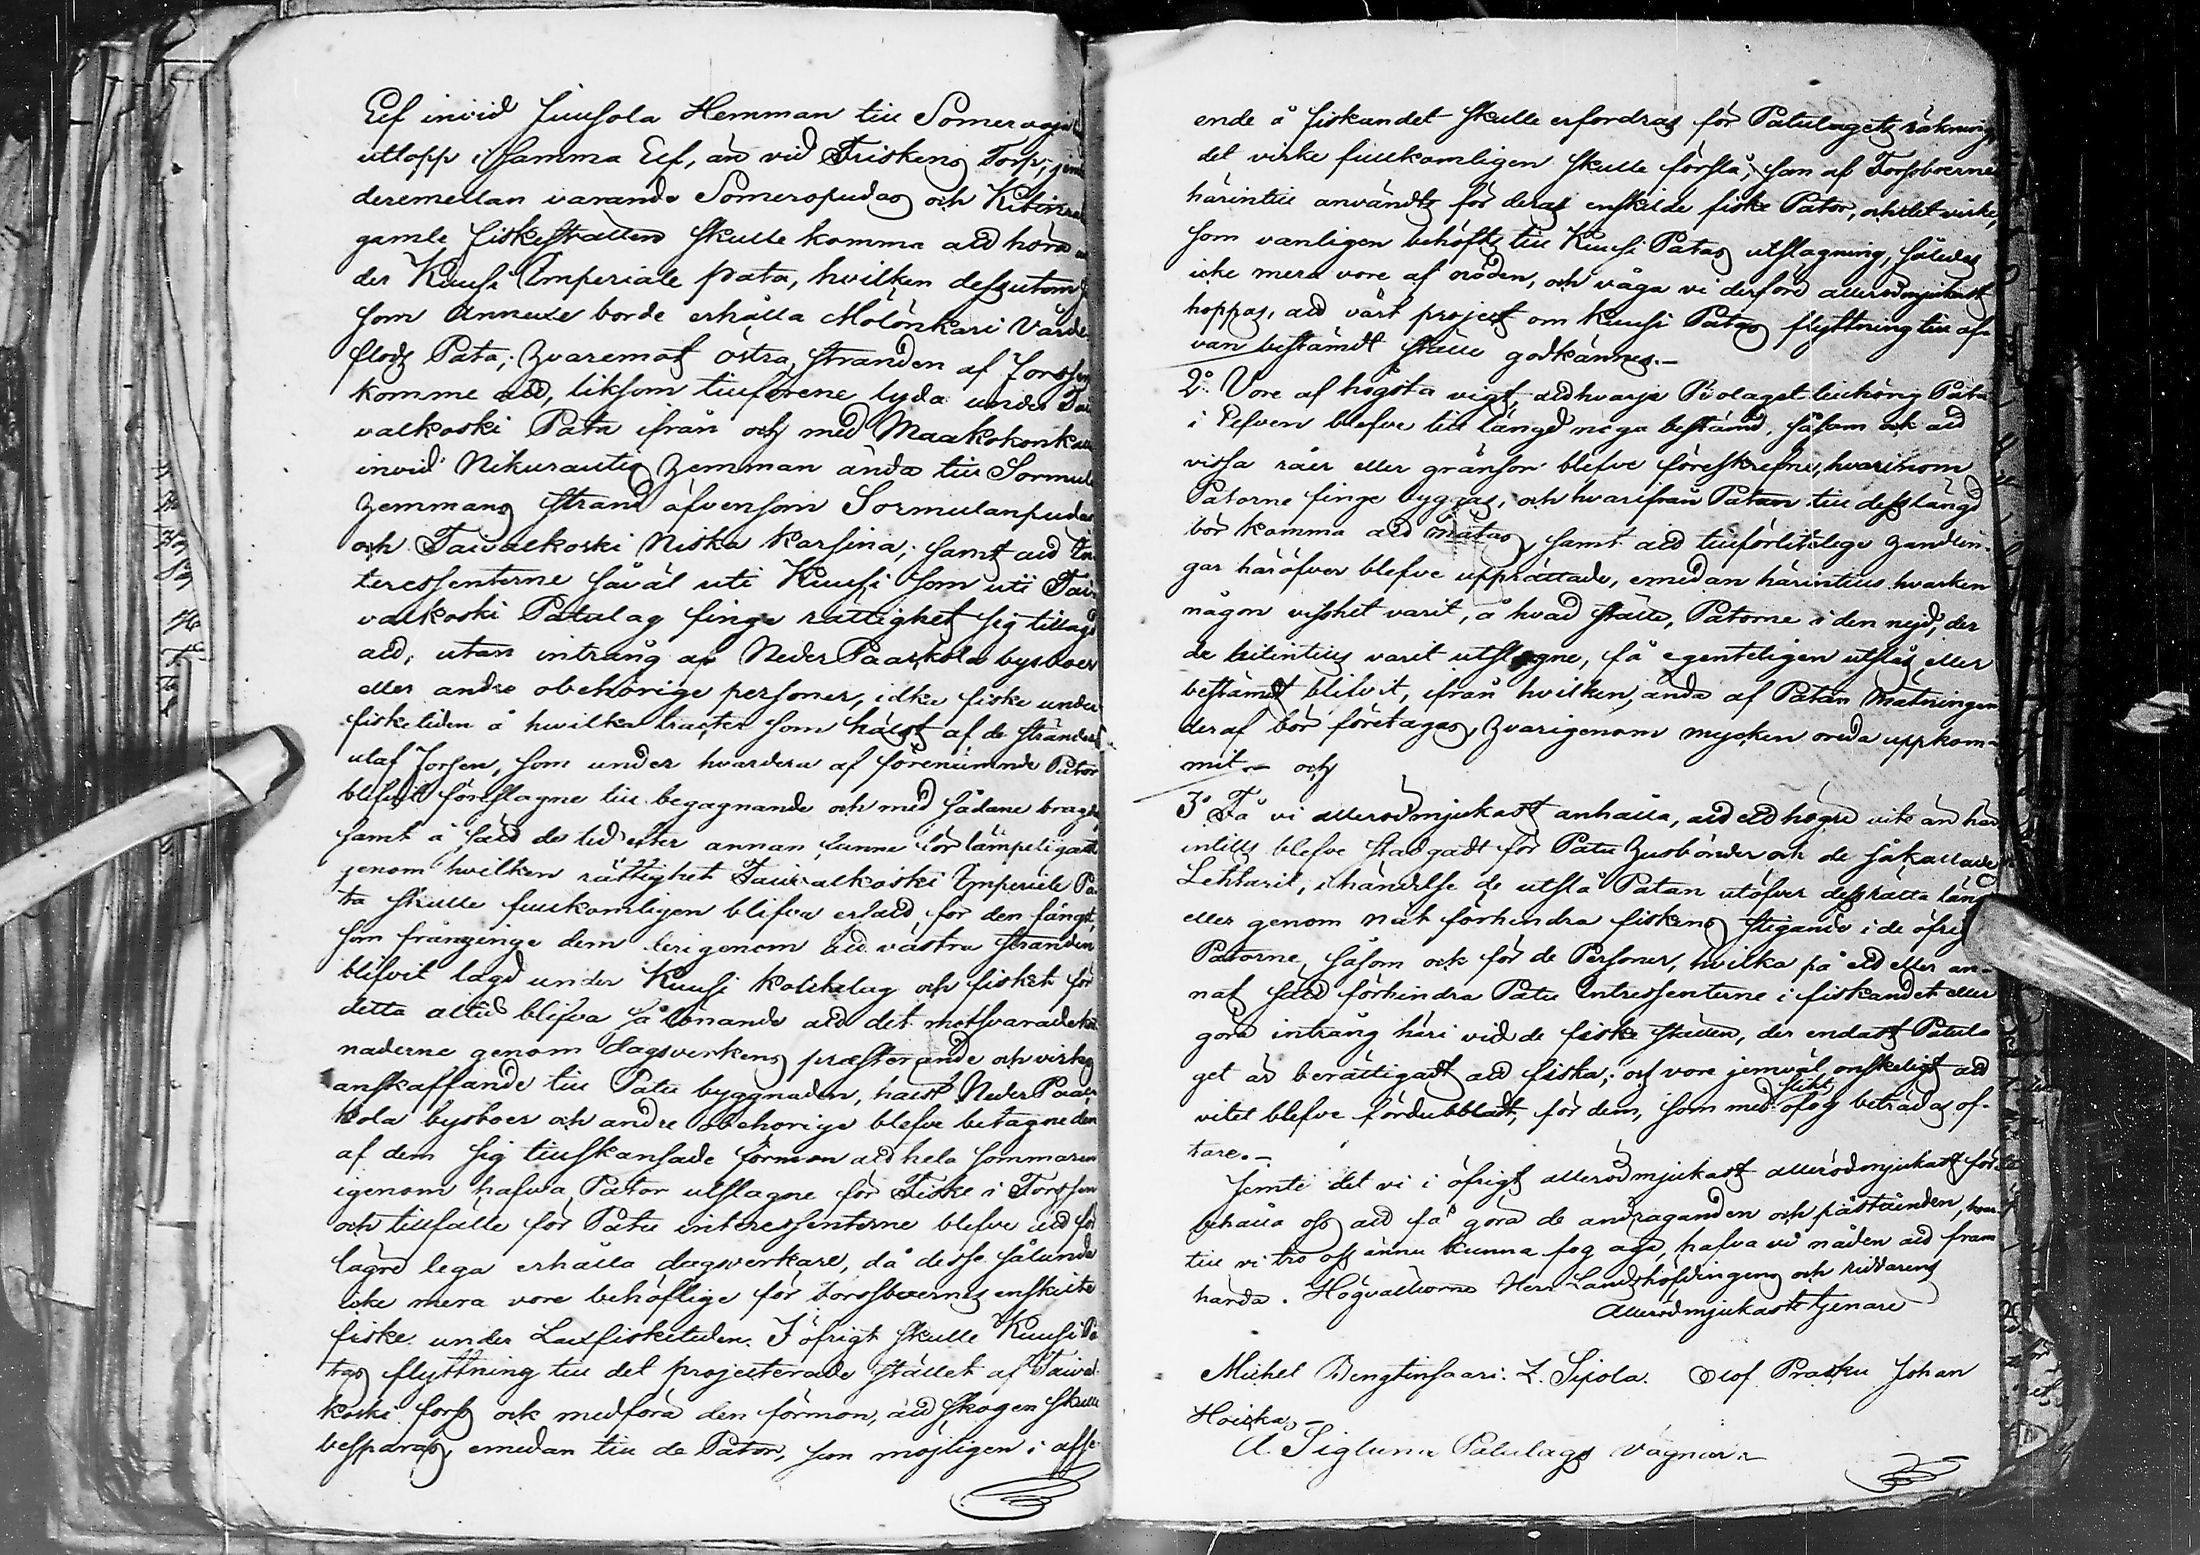 Elf invid Juusola Hemman till Someroja
utlopp i samma Elf, än vid Friskens Torp,
deremellan varande Someropudas och
gamle fiskeställen skulle komma att höra
der Kuusi Imperiale pata, hvilken dessutom
som Annexe borde erhålla Mölönkari Vårde
flods Pata; Hvaremot östra stranden af Forssen
komme att, liksom tillförene lyda under Tai
valkoski Pata ifrån och med Maakokonkari
invid Nikurautio Hemman ända till Sormula
Hemmans strand äfvensom Sormulanpudas
och Taivalkoski Niska karsina; samt att In
teressenterne såväl uti Kuusi som uti Tai
valkoski Patulag finge rättighet sig tillagd
att, utan intrång af Neder Paakkola bysboer
eller andre obehörige personer, idka fiske under
fisketiden å hvilka trakter som hälst af de stränder
utaf Forsen, som under hvardera af förenämnde Pator
blifvit föreslagne till begagnande och med sådane bragder,
samt å sätt de tid efter annan funne för lämpeligast
genom hvilken rättighet Taivalkoski Imperiele Pa
ta skulle fullkomligen blifva ersatt för den fångst,
som frånginge dem derigenom att västra stranden
blifvit lagd under Kuusi kolckelag och fisket för
detta alltid blifva så lönande att det motsvarade kost
naderne genom dagsverkens præsterande och virkes
anskaffande till Patu byggnaden, hälst Neder Paak
kola bysboer och andre obehörige blefve betagne den
af dem sig tillskansade förmon att hela sommaren
igenom hafva Pator utslagne för Fiske i Forssen
och tillfälle för Patu interessenterne blefve att för
lägre lega erhålla dagsverkare, då desse sålunde
icke mera vore behöflige för forssboernes enskilte
fiske under Laxfisketiden. I öfrigt skulle Kuusi Pa
tas flyttning till det projecterade stället af Taival
koski fors och medföra den förmon, att skogen skulle
besparas, emedan till de Pator, som möjligen i afse
ende å fiskandet skulle erfordras för Patulagets räkning,
det virke fullkomligen skulle förslå, som af Forssboerne
härintill användts för deras enskilde fiske Pator, och det virke,
som vanligen behöfts till Kuusi Patas utslagning, således
icke mera vore af nöden, och våga vi derföre allerödmjukast
hoppas, att vårt project om Kuusi Patas flyttning till af-
van bestämdt ställe godkännes.-
2o Vore af högsta vigt, att hvarje Bolaget tillhörig Pata
i Elfven blefve till längd noga bestämd, såsom ock att
vissa råer eller gränsor blefve föreskrefne, hvarinom
Patorne finge byggas, och hvarifrån Patan till dess längd
bör komma att mätas, samt att tillförlitelige Handlin-
gar häröfver blefve upprättade, emedan härintills hvarken
någon visshet varit, å hvad ställe, Patorne i den nejd, der
de hitintills varit utslagne, få egenteligen utslås eller
bestämdt blifvit, ifrån hvilken ända af Patan mätningen
deraf bör företagas, Hvarigenom mycken oreda uppkom-
mit.- och
3o Få vi allerödmjukast anhålla, att ett högre vite än här
intills blefve stadgadt för Patu Husbönder och de så kallade
i händelse de utslå Patan utöfver dess rätta längd
eller genom nät förhindra fiskens stigande i de öfrige
Patorne, såsom ock för de Personer, hvilka på ett eller an-
nat sätt förhindra Patu Intressenterne i fiskandet eller
göra intrång häri vid de fiske ställen, der endast Patula
get är berättigadt att fiska; och vore jemväl önskeligt att
vitet blefve fördubbladt, för dem, som med slikt ofog beträdas of-
tare.-
Jemte det vi i öfrigt allerödmjukast allerödmjukast för
behålla oss att få göra de andraganden och påståenden, hvar
till vi tro oss ännu kunna fog äga, hafva vi nåden att fram
härda. Högvälborne Herr Landshöfdingens och riddarens
allerödmjukaste tjenare
Michel Bengtinsaari. Z. Sipola. Olof Prasku Johan
Hoicka,-
Å Patulags vägnar.